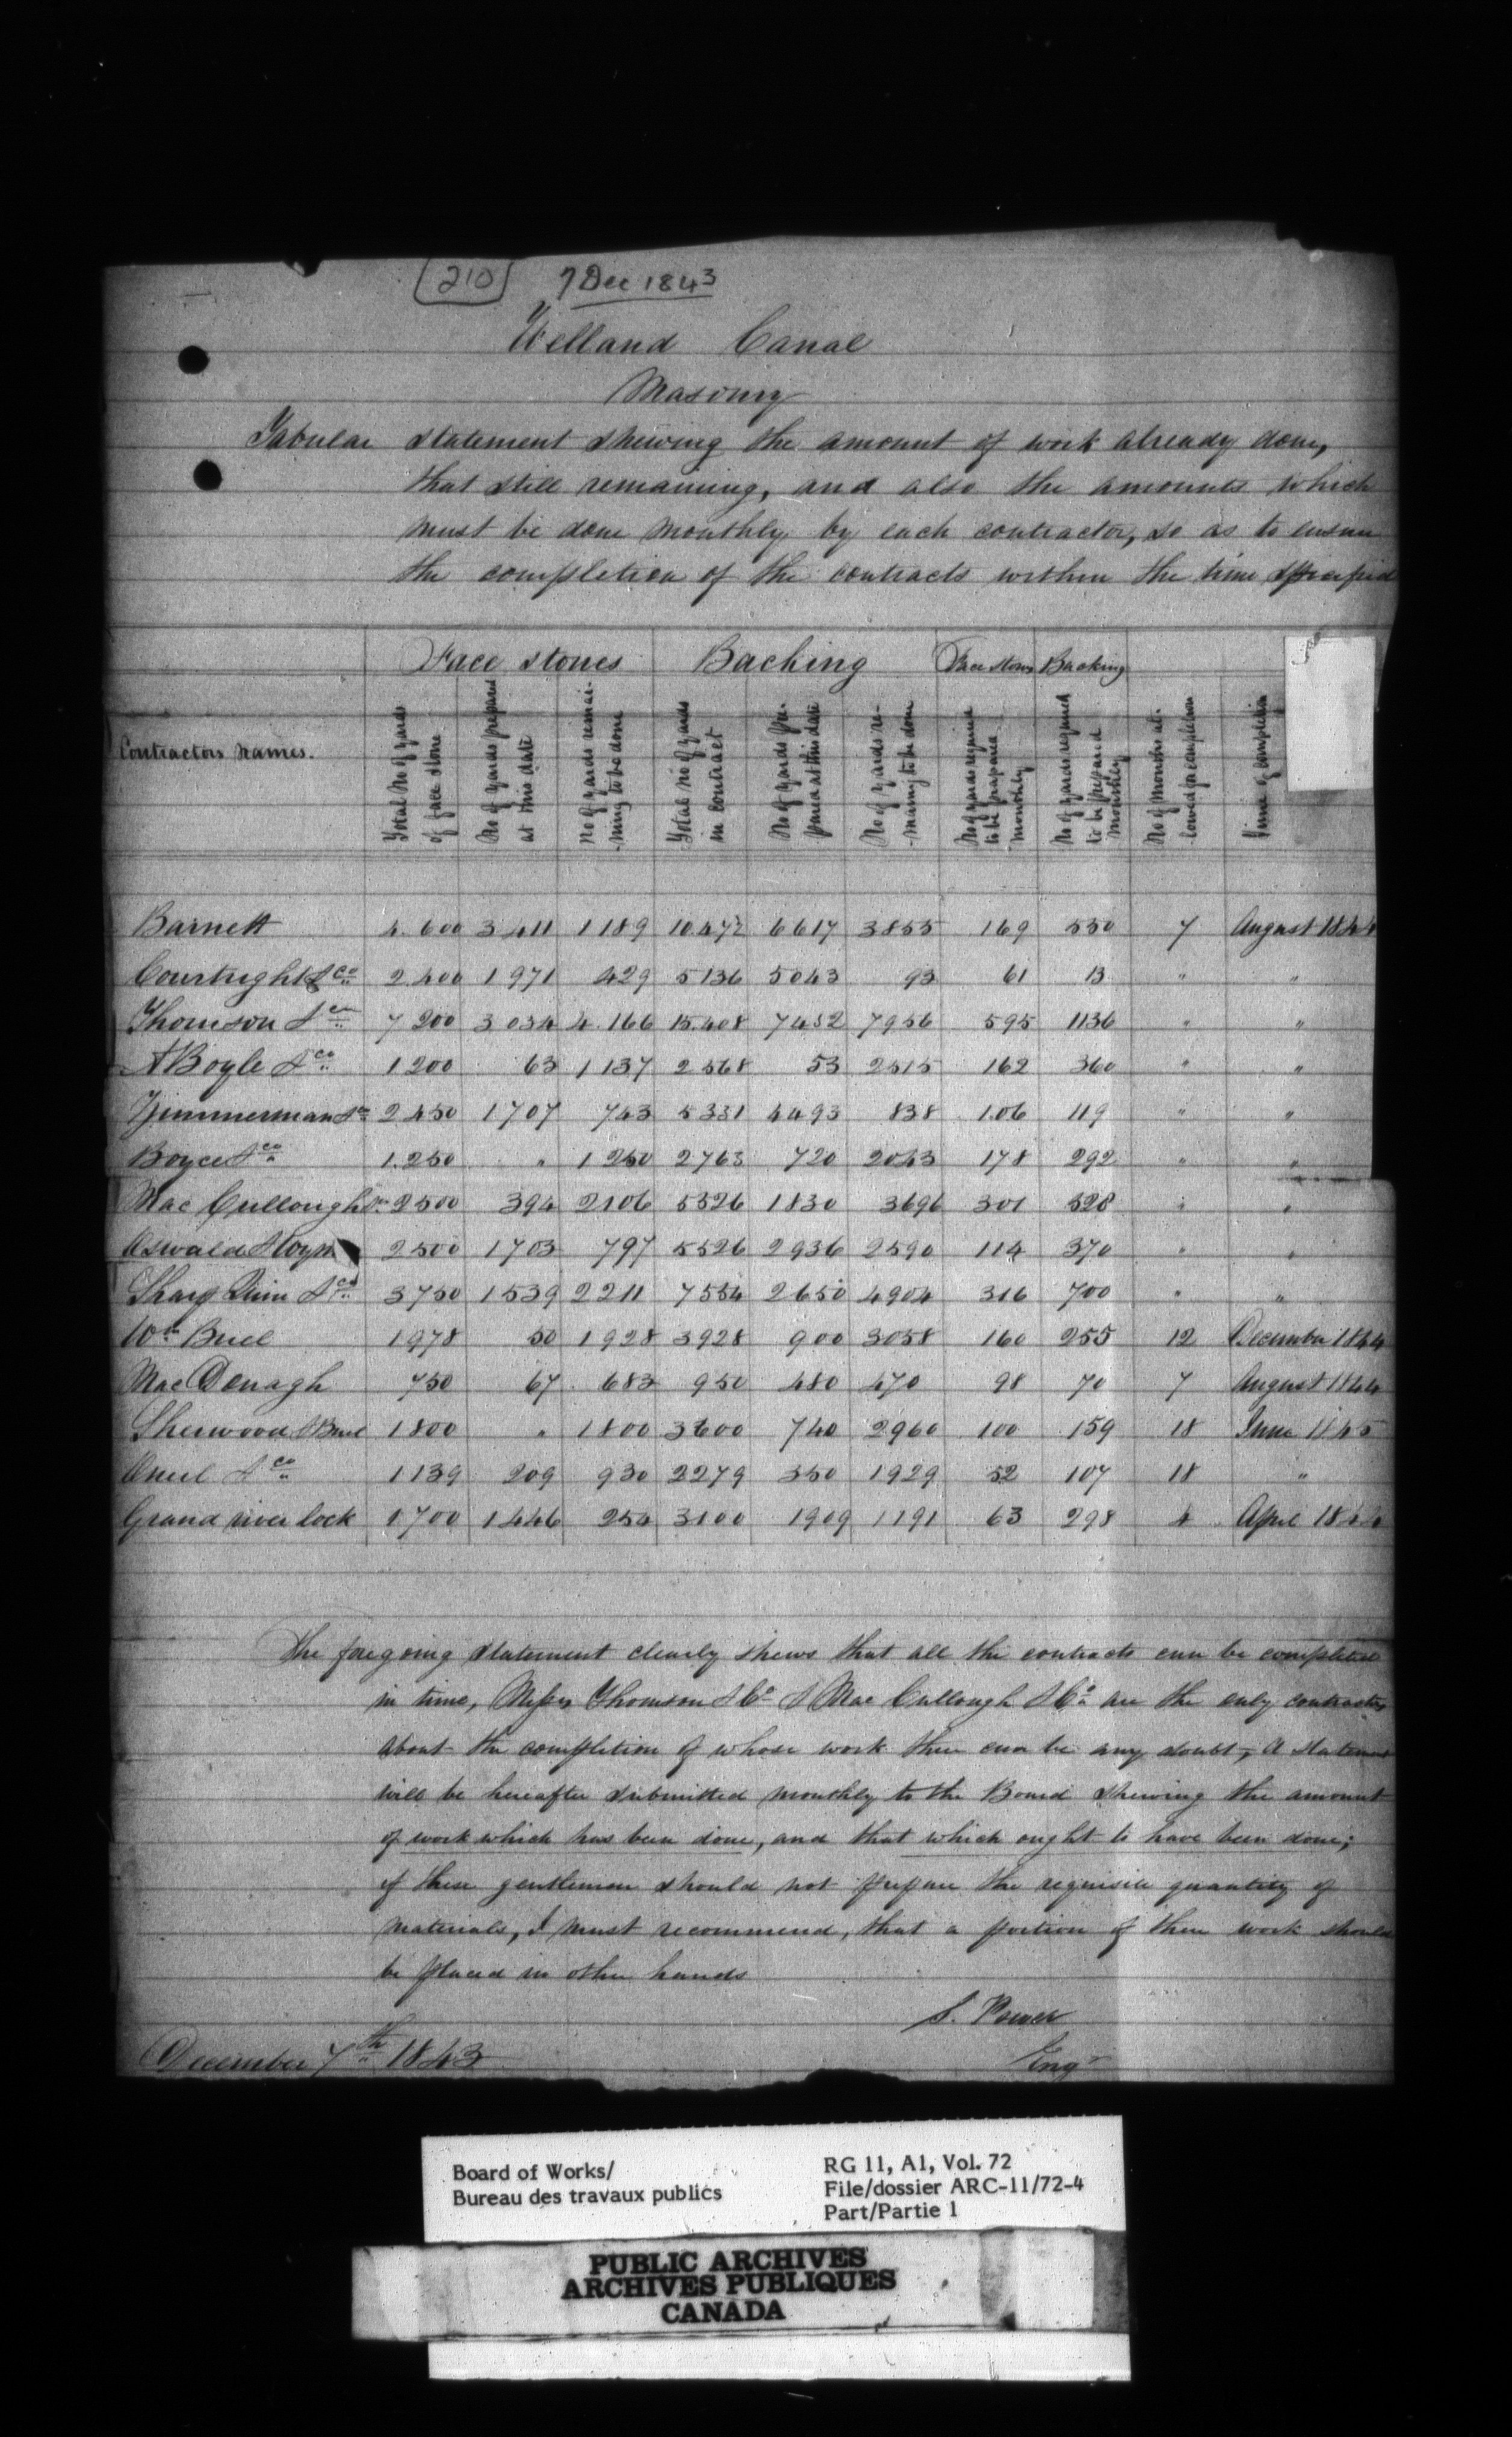 210 7 Dec 1843
Welland Canal
Masonry
Tabular statement shewing the amount of work already done,
that still remaining, and also the amounts which
must be done monthly by each contractor, so as to ensure
the completion of the contracts within the time specified
Face stones Backing Face stones Backing
Contractors names. Total No of yards of face stone No of yards prepared at this date No of yards remai-ning to be done Total no of yards in contract No of yards pre-pared at this date No of yards re-maining to be done No of yards required to be prepared monthly No of yards required to be prepared monthly No of months al-lowed for completion Time of completion
Barnett 4.600 3411 1189 10.472 6617 3855 169 550 7 August 1844
Courtright & Co 2400 1971 429 5136 5043 93 61 13 " "
Thomson & Co 7200 3034 4.166 15.408 7452 7956 595 1136 " "
A Boyle & Co 1200 63 1137 2568 53 2515 162 360 " "
Zimmerman & Co 2450 1707 743 5331 4493 838 106 119 " "
Boyce & Co 1.250 " 1250 2763 720 2043 178 292 " "
Mac Cullough & Co 2500 394 2106 5526 1830 3696 301 528 " "
Oswald & 2500 1703 797 5526 2936 2590 114 370 " "
Sharp Quin & Co 3750 1539 2211 7554 2650 4904 316 700 " "
Wm Buel 1978 50 1928 3928 900 3058 160 255 12 December 1844
Mac Donagh 750 67 683 950 480 470 98 70 7 August 1844
Sherwood & Buel 1800 " 1800 3600 740 2960 100 159 18 June 1845
Oneil & Co 1139 209 930 2279 350 1929 52 107 18 "
Grand river lock 1700 1446 254 3100 1909 1191 63 298 4 April 1844
The foregoing statement clearly shews that all the contracts can be completed
in time, Messrs Thomson & Co & Mac Cullough & Co are the only contractors
about the completion of whose work there can be any doubt, A statement
will be hereafter submitted monthly to the Board shewing the amount
of work which has been done, and that which ought to have been done;
if these gentlemen should not prepare the requisite quantity of
materials, I must recommend, that a portion of their work should
be placed in other hands
S. Power
December 7th 1843 Engr
Board of Works/
Bureau des travaux publics
RG 11, A1, Vol. 72
File/dossier ARC-11/72-4
Part/Partie 1
PUBLIC ARCHIVES
ARCHIVES PUBLIQUES
CANADA